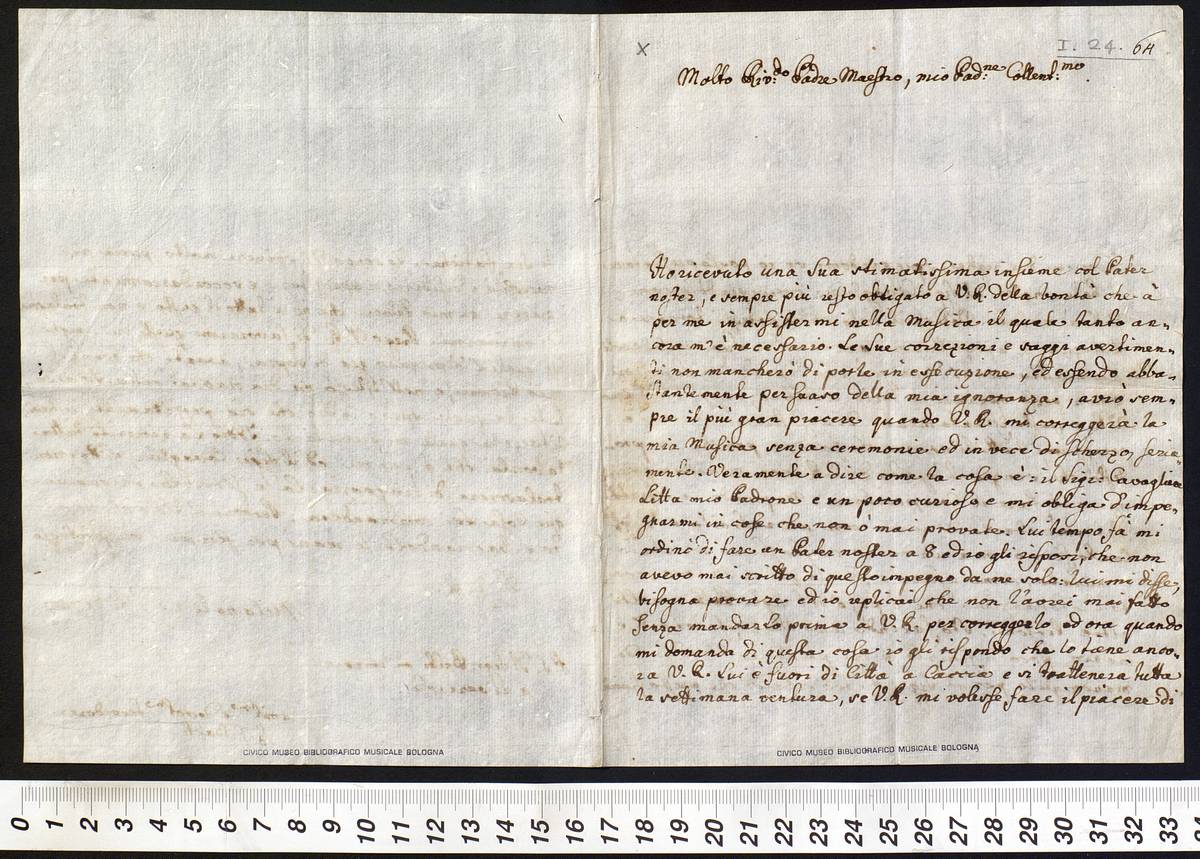 X
I. 24. 64
Molto Riv:do Padre Maestro, mio Pad:ne Collent:mo.
Ho ricevuto una sua stimatissima insieme col Pater
noster, e sempre più resto obligato a V. R. della bontà che à
per me in assistermi nella Musica il quale tanto an-
cora m'è necessario. Le sue correzioni e saggi avertimen-
ti non mancherò di porle in essecuzione, ed essendo abba-
stantemente persuaso della mia ignoranza, avrò sem-
pre il più gran piacere quando V. R. mi correggerà la
mia Musica senza ceremonie ed in vece di scherzo, seria-
mente. Veramente a dire come la cosa è: il Sigr: Cavagliere
Litta mio Padrone e un poco curioso e mi obliga d'impe-
gnarmi in cose che non ò mai provate. Lui tempo fà mi
ordinò di fare un Pater noster a 8 ed io gli risposi, che non
avevo mai scritto di questo impegno da me solo: lui mi disse,
bisogna provare ed io replicai che non l'aorei mai fatto
senza mandarlo prima a V. R. per correggerlo ed ora quando
mi domanda di questa cosa io gli rispondo che lo tiene anco-
ra V. R. Lui è fuori di Città a Caccia e si trattenerà tutta
la settimana ventura, se V. R. mi volesse fare il piacere di
CIVICO MUSEO BIBLIOGRAFICO MUSICALE BOLOGNA
CIVICO MUSEO BIBLIOGRAFICO MUSICALE BOLOGNA
0 1 2 3 4 5 6 7 8 9 10 11 12 13 14 15 16 17 18 19 20 21 22 23 24 25 26 27 28 29 30 31 32 33